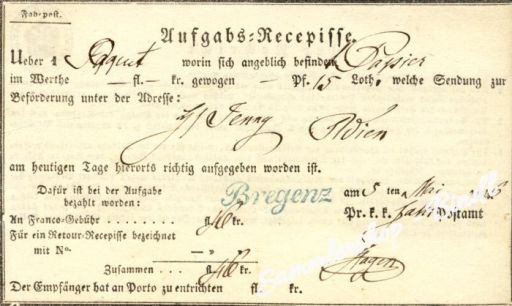 Fahrpost.
Aufgabs-Recepisse.
Ueber 1 Paquet worin sich angeblich befinden Papier
im Werthe — fl. — kr. gewogen — Pf. 15 Loth, welche Sendung zur
Beförderung unter der Adresse:
Jenny Wien
am heutigen Tage hierorts richtig aufgegeben worden ist.
Dafür ist bei der Aufgabe
bezahlt worden:
Bregenz
am 5 ten Mai
An Franco-Gebühr fl. 18 kr.
Pr. k. k. Fahr Postamt
Für ein Retour-Recepisse bezeichnet
mit No. — „ „
Zusammen fl. 18 kr.
Hagen
Der Empfänger hat an Porto zu entrichten fl. kr.
Sammlershop